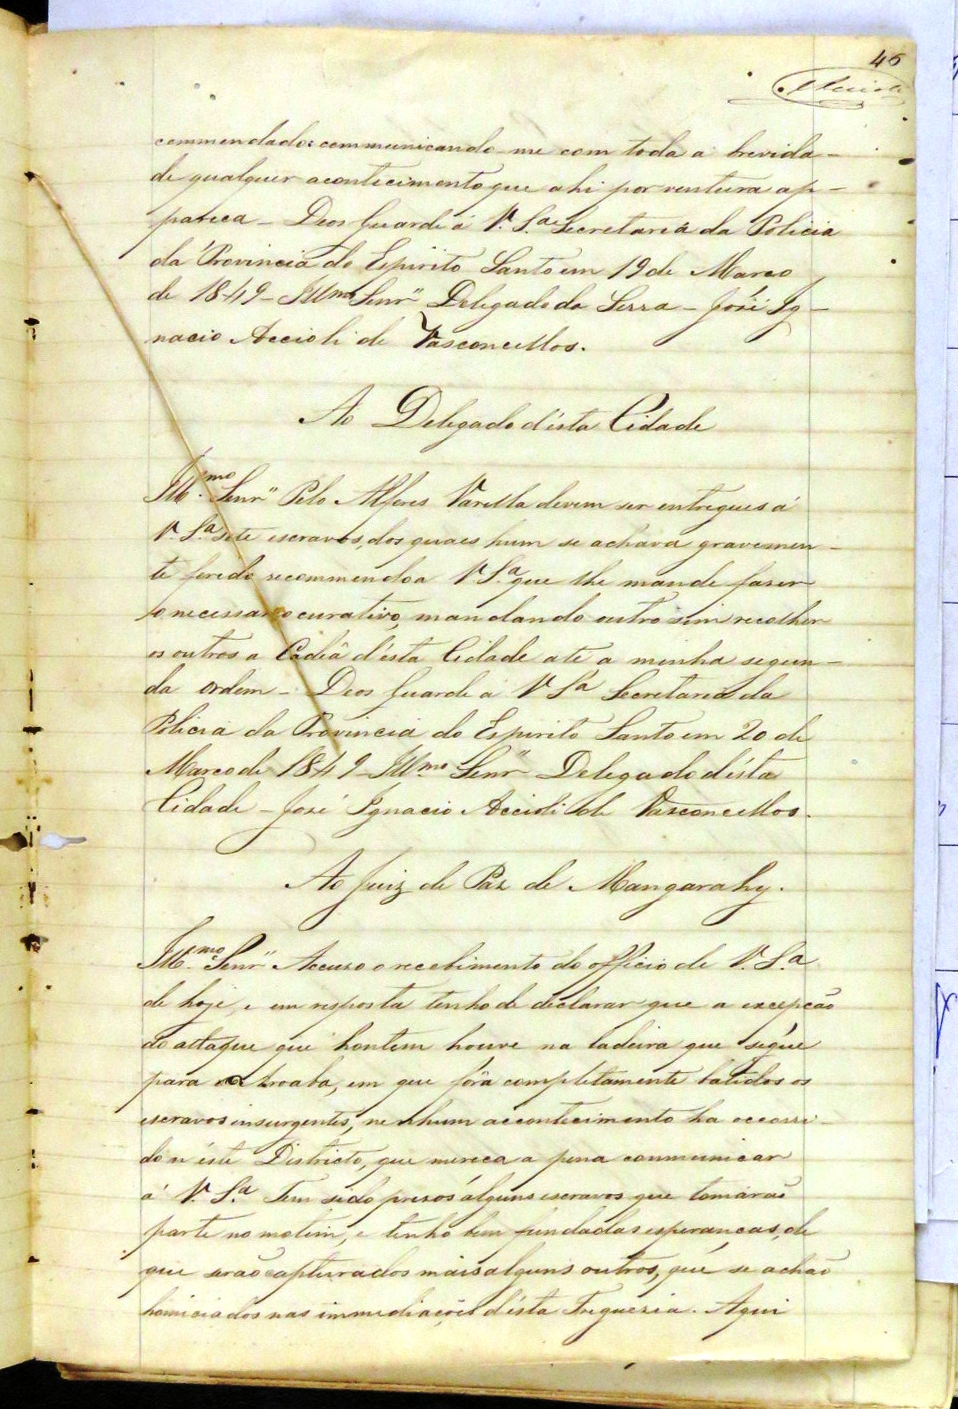 46
commendado: communicando-me com toda a brevida-
de qualquer acontecimento que ahi por ventura ap-
pareça - Deos Guarde á V. S.ª Secretaria da Policia
da Provincia do Espirito Santo em 19 de Março
de 1849 - Illmo Senr" Delegado da Serra - José Ig-
nacio Accioli de Vasconcellos.
Ao Delegado d'ésta Cidade
Ill.mo Senr" Pelo Alferes Varella devem ser entregues á
V. S.ª sete escravos, dos quaes hum se achava gravemen-
te ferido recommendo a V S.ª que lhe mande faser
o necessario curativo, mandando outro sim recolher
os outros a Cadêa d'ésta Cidade até a minha segun-
da ordem - Deos Guarde a V Sª Secretaria da
Policia da Provincia do Espirito Santo em 20 de
Março de 1849 - Illmo Senr" Delegado d'ésta
Cidade - José Ignacio Accioli de Vasconcellos.
Ao Juiz de Paz de Mangarahy.
Ill.mo Senr" Accuso o recebimento do officio de V. S.ª
de hoje, e em resposta tenho de declarar que a excepção
do attaque que hontem houve na ladeira que ségue
para a aroaba, em que fôrã completamente batidos os
escravos insurgentes, nenhum accontecimento ha occorri-
do n'éste Districto, que mereça a pena communicar
á V. S.ª Tem sido presos álguns escravos que tomárão
parte no motim, e tenho bem fundadas esperanças, de
que serão capturados mais alguns outros, que se achão
homisiados nas immediações d'ésta Freguezia. Aqui